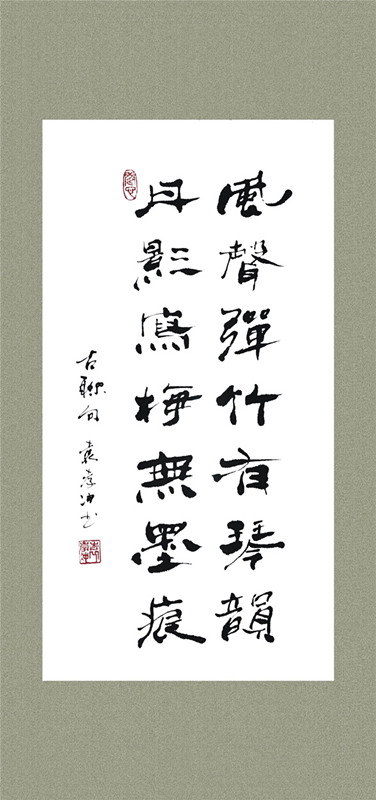 風聲彈竹有琴韻
月影寫梅無墨痕
古聯句 袁 書